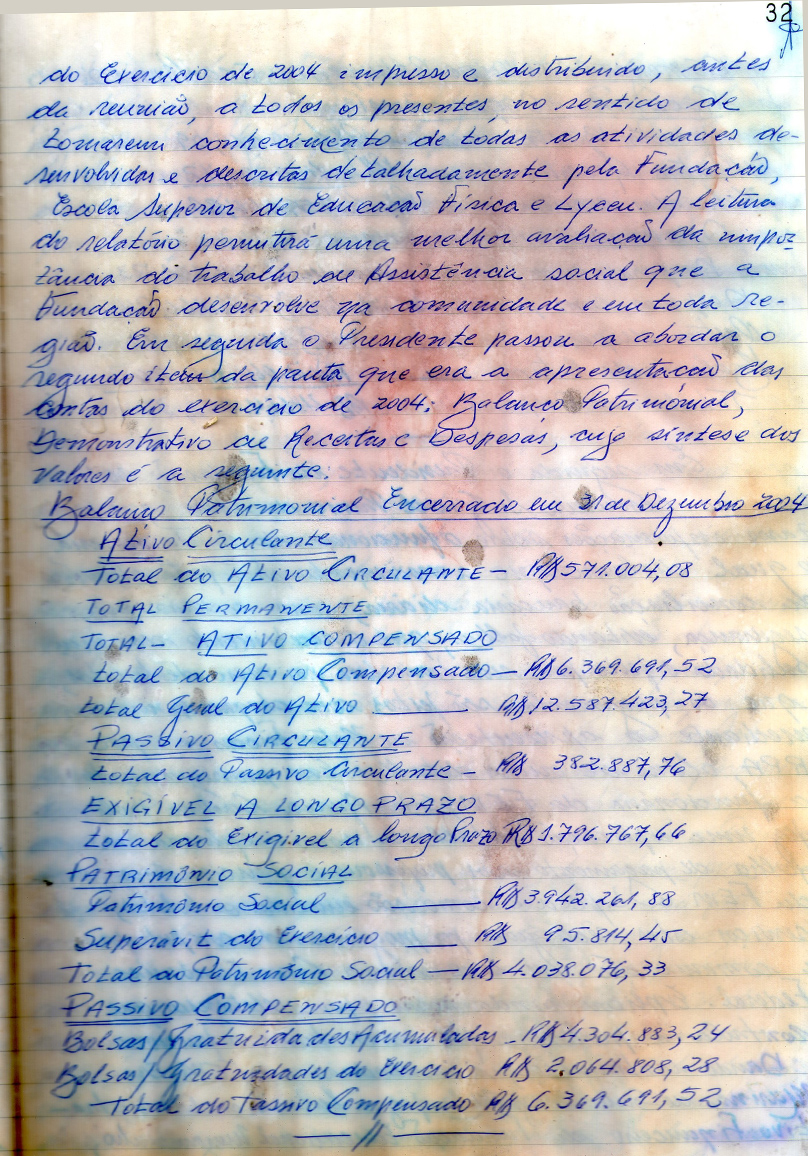 32
do Exercício de 2004 impresso e distribuido, antes
da reunião, a todos os presentes, no sentido de
tomarem conhecimento de todas as atividades de-
senvolvidas e descritas detalhadamente pela Fundação,
Escola Superior de Educação Física e Lyceu. A leitura
do relatório permitirá uma melhor avaliação da impor-
tância do trabalho de Assistência social que a
Fundação desenvolve na comunidade e em toda re-
gião. Em seguida o Presidente passou a abordar o
segundo item da pauta que era a apresentação das
contas do exercício de 2004: Balanco Patrimonial,
Demonstrativo de Receitas e Despesas, cuja síntese dos
valores é a seguinte:
Balanco Patrimonial Encerrado em 31 de Dezembro 2004
Ativo Circulante
Total do Ativo Circulante - R$ 571.004,08
TOTAL PERMANENTE
TOTAL - ATIVO COMPENSADO
total do Ativo Compensado - R$ 6.369.691,52
total Geral do Ativo ——— R$ 12.587.423,27
PASSIVO CIRCULANTE
total do Passivo Circulante - R$ 382.887,76
EXIGÍVEL A LONGO PRAZO
total do Exigivel a longo Prazo R$ 1.796.767,66
PATRIMÔNIO SOCIAL
Patrimônio Social ——— R$ 3.942.261,88
Superávit do Exercício —— R$ 95.814,45
Total do Patrimônio Social — R$ 4.038.076,33
PASSIVO COMPENSADO
Bolsas/Gratuidades Acumuladas - R$ 4.304.883,24
Bolsas/Gratuidades do Exercício R$ 2.064.808,28
Total do Passivo Compensado R$ 6.369.691,52
—— // ——